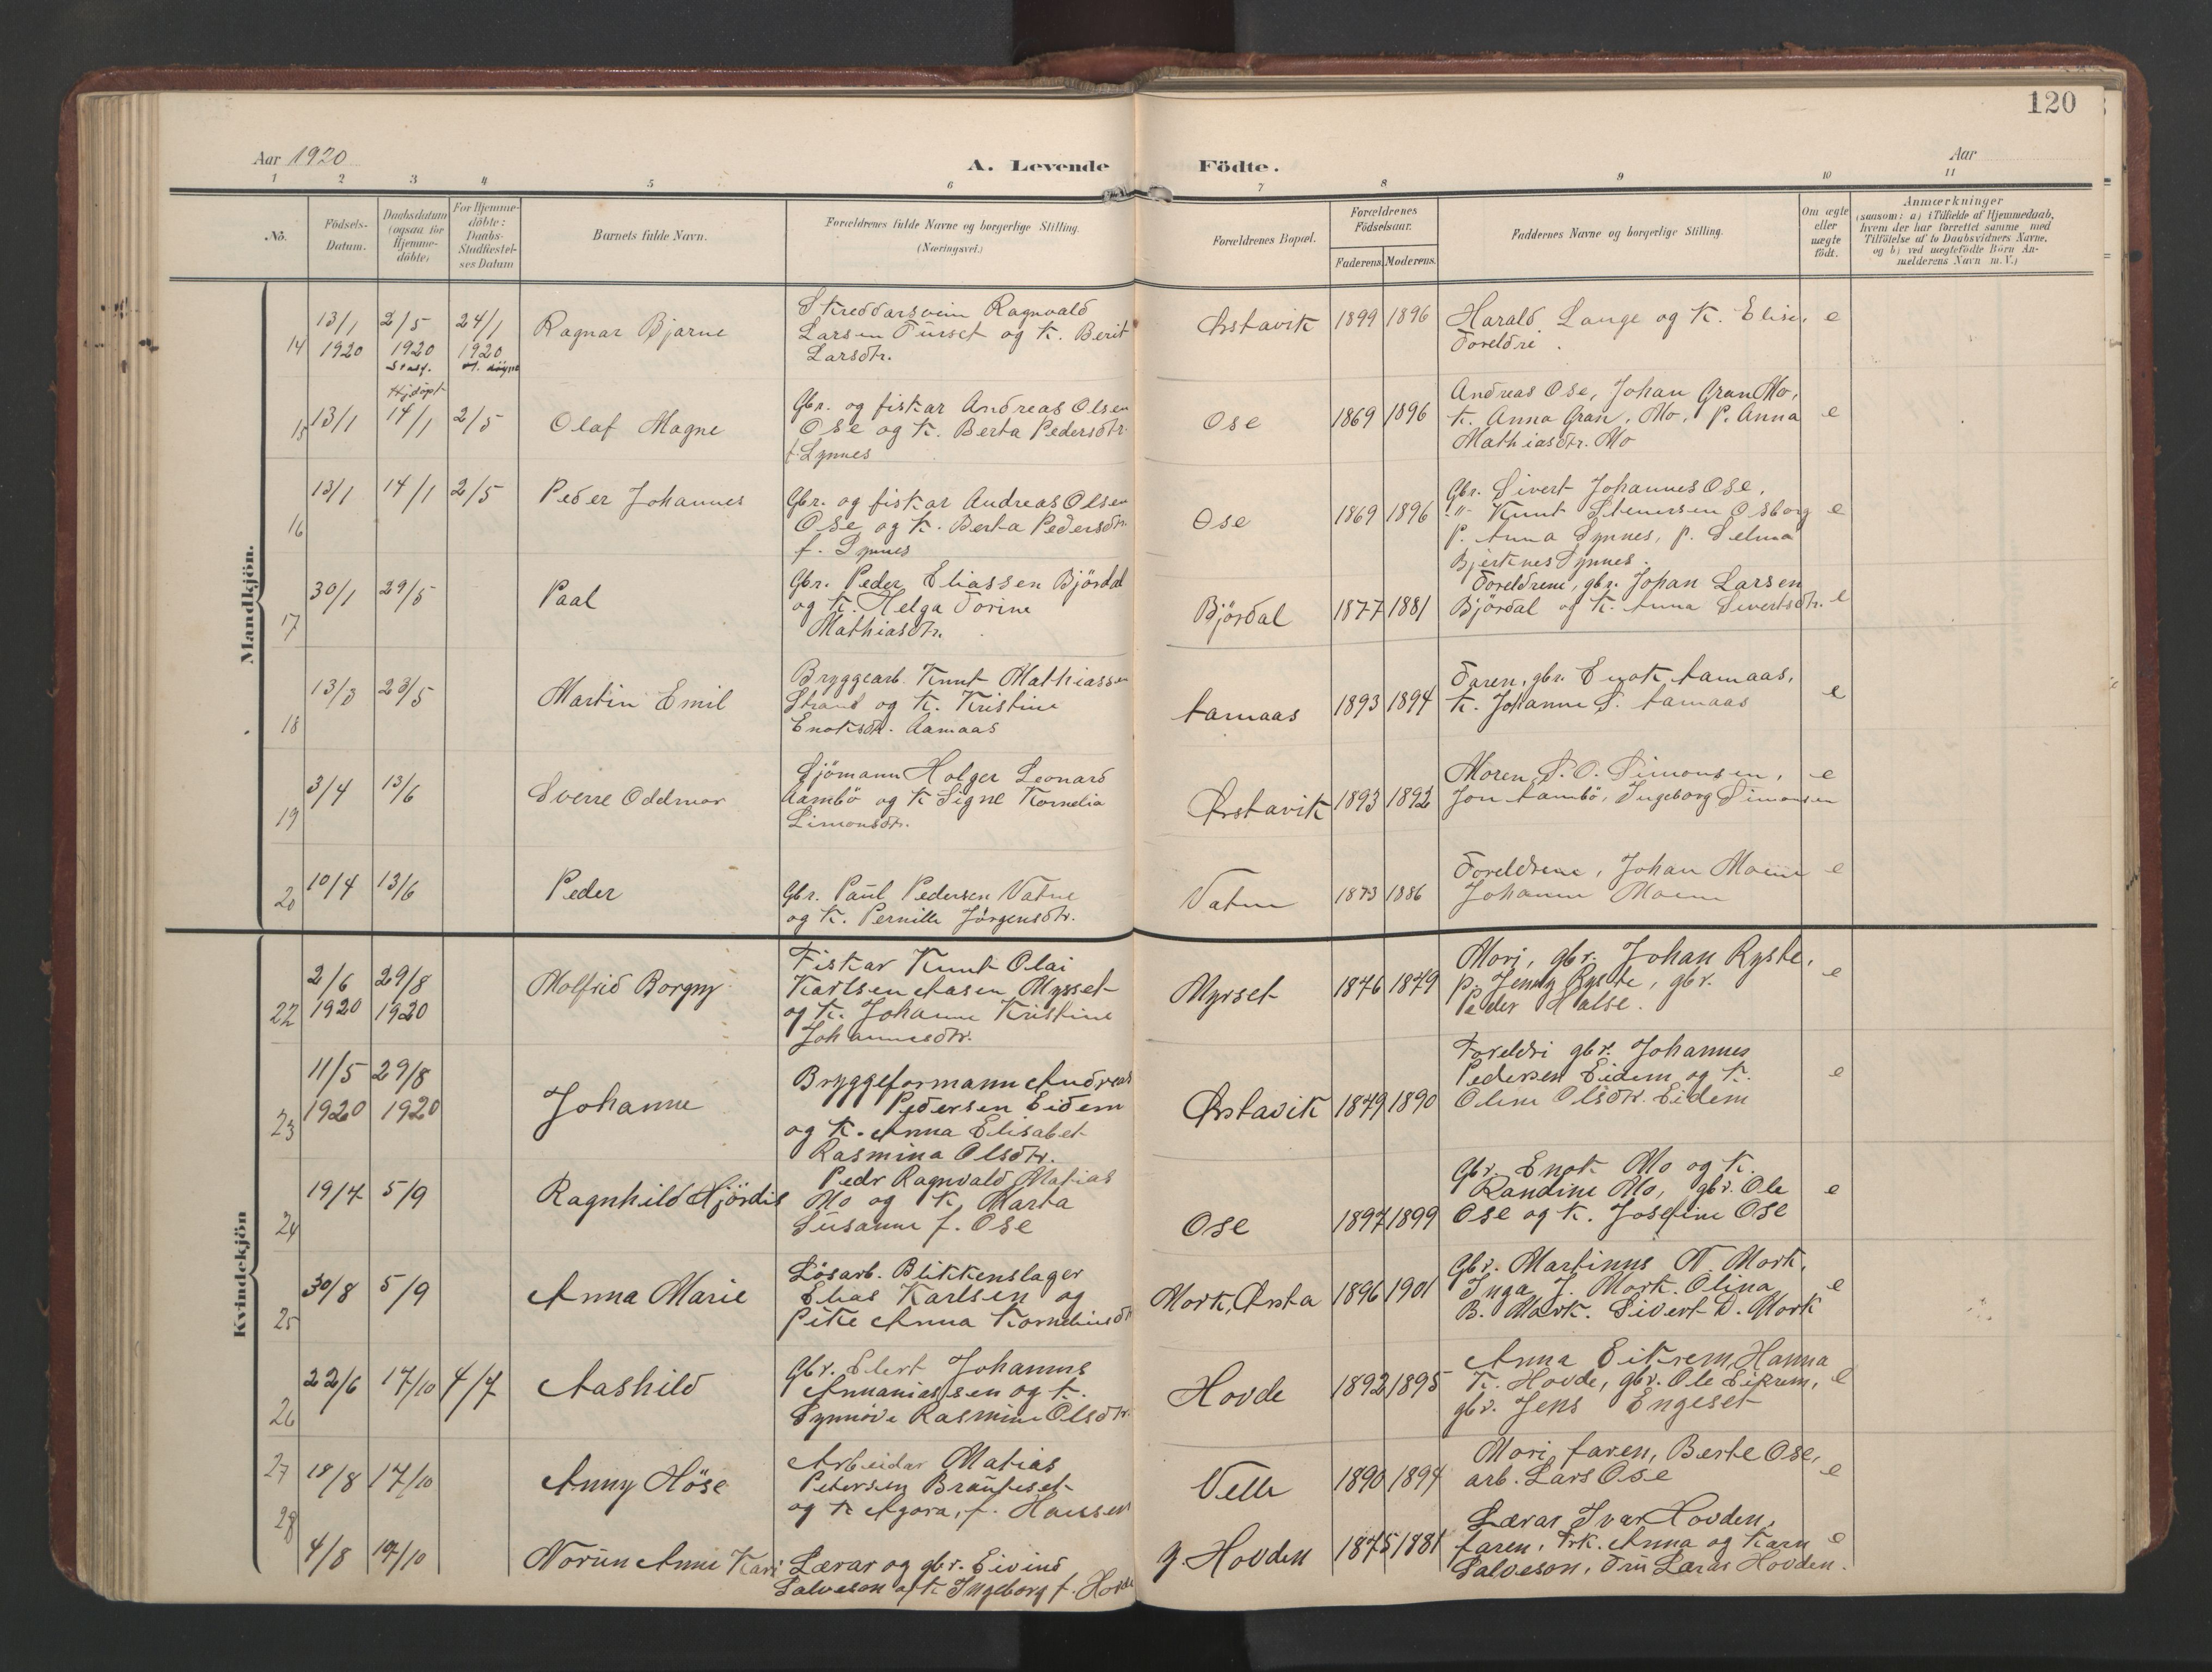 120
Aar 1920
A. Levende Födte.
Aar
1 2 3 4 5 6 7 8 9 10 11
Nö.
Födsels-
Datum.
Daabsdatum
(ogsaa for
Hjemme-
döbte)
For Hjemme-
döbte:
Daabs-
Stadfæstel-
ses Datum
Barnets fulde Navn.
Forældrenes fulde Navne og borgerlige Stilling.
(Næringsvei.)
Forældrenes Bopæl.
Forældrenes
Födselsaar.
Faderens. Moderens.
Faddernes Navne og borgerlige Stilling.
Om ægte
eller
uægte
födt.
Anmærkninger
(saasom: a) i Tilfælde af Hjemmedaab,
hvem der har forrettet samme med
Tilföielse af to Daabsvidners Navne,
og b) ved uægtefödte Börn An-
melderens Navn m. V.)
Mandkjön.
14
13/1
1920
2/5
1920
Stadf.
24/1
1920
Ragnar Bjarne
Skreddarsvein Ragnvald
Larsen Furset og K. Berit
Larsdtr.
Ørstavik
1899 1896
Harald Lange og K. Elise,
Foreldre.
e
15
13/1
Hjdöpt
14/1
2/5
Olaf Magne
Gbr. og fiskar Andreas Olsen
Ose og K. Berta Pedersdtr.
f. Synnes
Ose
1869 1896
Andreas Ose, Johan Gran Mo,
K. Anna Gran, Mo, p. Anna
Mathiasdtr. Mo
e
16
13/1
14/1
2/5
Peder Johannes
Gbr. og fiskar Andreas Olsen
Ose og K. Berta Pedersdtr.
f. Synnes
Ose
1869 1896
Gbr. Sivert Johannes Ose,
-"- Knut Stenersen Osborg
p. Anna Synnes, p. Selma
Bjerknes Synnes.
e
17
30/1
29/5
Paal
Gbr. Peder Eliassen Björdal
og K. Helga Torine
Mathiasdtr.
Björdal
1877 1881
Foreldrene, gbr. Johan Larsen
Björdal og K. Anna Sivertsdtr.
e
18
13/3
23/5
Martin Emil
Bryggearb. Knut Mathiassen
Strand og K. Kristine
Enoksdtr. Aamaas
Aamaas
1893 1894
Faren, gbr. Enok Aamaas,
K. Johanne S. Aamaas
e
19
3/4
13/6
Sverre Oddmar
Sjömann Holger Leonard
Aambö og K Signe Kornelia
Simonsdtr.
Ørstavik
1893 1892
Moren, S. O. Simonsen,
Jon Aambö, Ingeborg Simonsen
e
20
10/4
13/6
Peder
Gbr. Paul Pedersen Vatne
og K. Pernille Jörgensdtr.
Vatne
1873 1886
Foreldrene, Johan Moene
Johanne Moene
e
Kvindekjön
22
2/6
1920
29/8
1920
Molfrid Borgny
Fiskar Knut Olai
Karlsen Aasen Mysset
og K. Johanne Kristine
Johannesdtr.
Myrset
1876 1879
Mori, gbr. Johan Ryste,
p. Jenny Ryste, gbr.
Peder Halse.
e
23
11/5
1920
29/8
1920
Johanne
Bryggeformann Andreas
Pedersen Eidem
og K. Anna Elisabet
Rasmina Olsdtr.
Ørstavik
1879 1890
Foreldri gbr. Johannes
Pedersen Eidem og K.
Oline Olsdtr. Eidem
e
24
19/7
5/9
Ragnhild Hjördis
Pedr Ragnvald Matias
Mo og K Marta
Susanne f. Ose
Ose
1897 1899
Gbr. Enok Mo og K.
Randine Mo, gbr. Ole
Ose og K. Josefine Ose
e
25
30/8
5/9
Anna Marie
Lösarb. Blikkenslager
Elias Karlsen og
Pike Anna Korneliusdtr
Mork, Ørsta
1896 1901
Gbr. Martinus N. Mork,
Inga J. Mork. Olina
B. Mork. Sivert D. Mork
e
26
22/6
17/10
4/7
Aashild
Gbr. Elert Johannes
Annaniassen og K.
Synnöve Rasmine Olsdtr.
Hovde
1892 1895
Anna Eikrem, Hanna
K. Hovde, gbr. Ole Eikrem,
gbr. Jens Engeset
e
27
18/8
17/10
Anny Höse
Arbeidar Matias
Petersen Brauteset
og K Agora, f. Hanssen
Velle
1890 1894
Mori, faren, Berte Ose,
arb. Lars Ose
e
28
4/8
17/10
Norun Anne Kari
Lærar og gbr. Eivind
Salveson og K Ingeborg f. Hovde
y. Hovden
1875 1881
Lærar Ivar Hovden,
faren, Frk. Anna og Karn
Salveson, Fru Lærar Hovden.
e